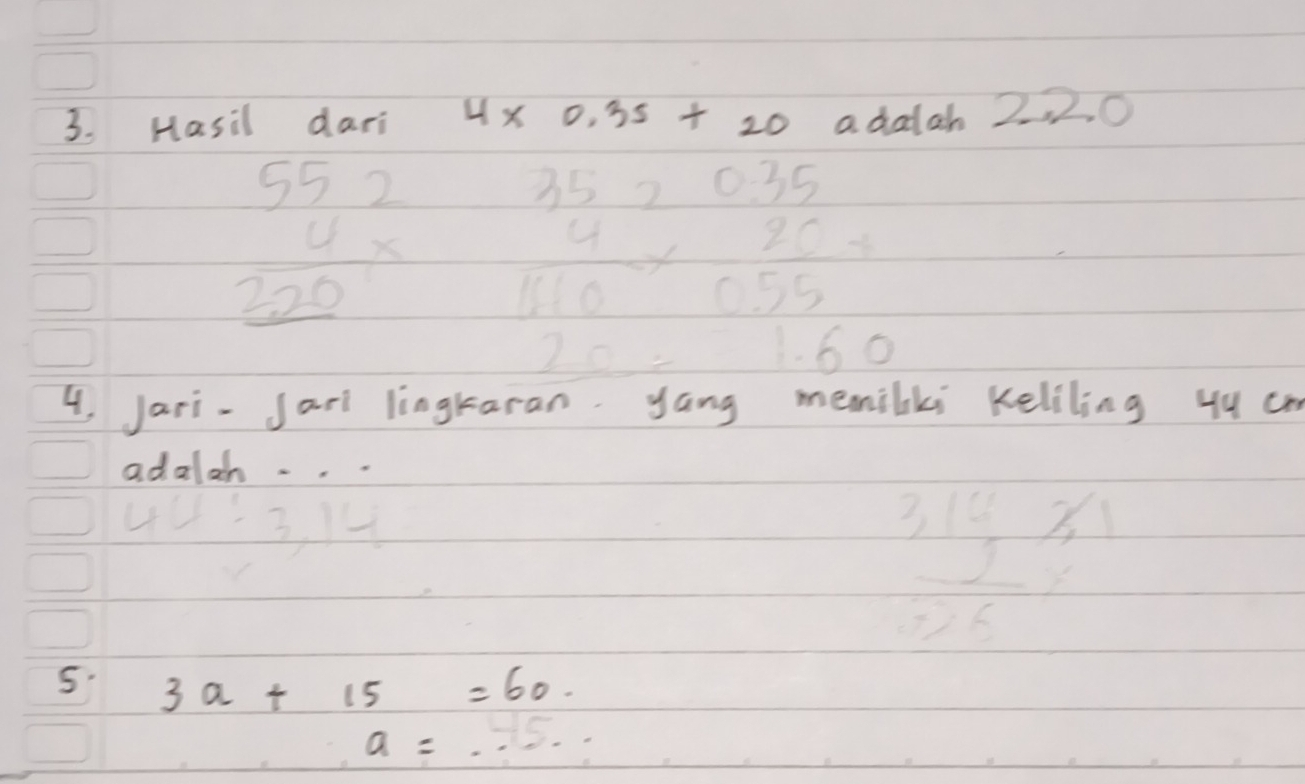 3. Hasil dari 4x 0.35 + 20 adalah 2.20
55 2 35 2 0.35
4 x 4 x 20 +
2.20 110 0.55
20 1.60
4. Jari - Jari lingkaran. yang memiliki Keliling 44 cm
adalah ...
44 : 3,14 3,14
2 x
26
5. 3a + 15 = 60.
a = ..45...